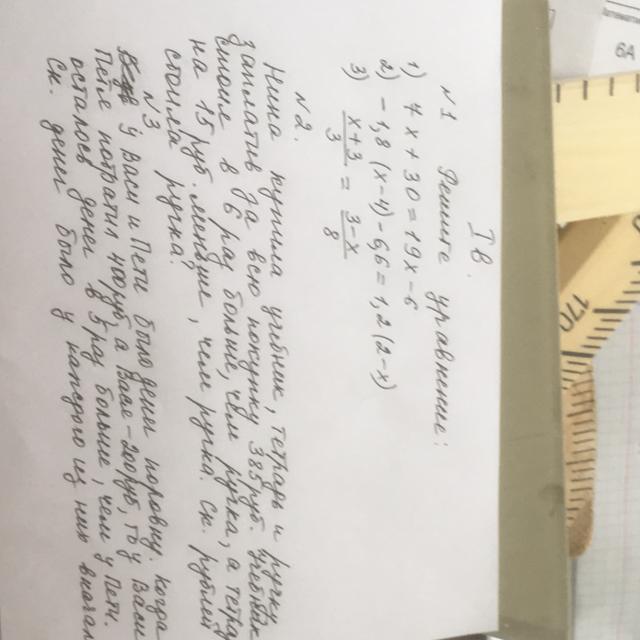 I в.
№1 Решите уравнение:
1) 4x + 30 = 19x - 6
2) -1,8(x-4)-6,6=1,2(2-x)
3) x+3/3 = 3-x/8
№2.
Нина купила учебник, тетрадь и ручку,
за всю покупку 385 руб.
в 16 раз больше, чем ручка, а тетрадь
на 15 руб. меньше, чем ручка. Ск. рублей
стоила ручка?
№3
У Васи и Пети было денег поровну. Когда
Петя потратил 40 руб, а Вася - 200 руб, то у Васи
осталось денег в 5 раз больше, чем у Пети.
Ск. денег было у каждого из них
6А
170